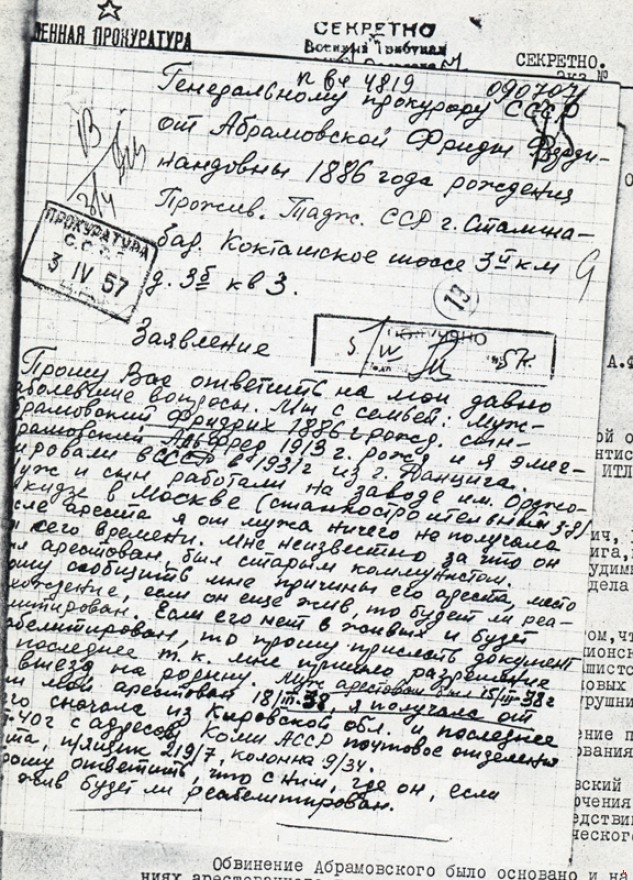 ЕННАЯ ПРОКУРАТУРА
СЕКРЕТНО
Военный Трибунал
СЕКРЕТНО.
Экз.№
п вч 4819
090707
Генеральному прокурору СССР
от Абрамовской Фриды Ферди-
нандовны 1886 года рождения
Прожив. Тадж. ССР г. Сталина-
бад. Кокташское шоссе 3й км
д. 3б кв 3.
ПРОКУРАТУРА
С.С.
3 IV 57
13
Заявление
Прошу Вас ответить на мои давно
аболевшие вопросы. Мы с семьей: Муж-
брамовский Фридрих 1886 г рожд. сын-
рамовский Альфред 1913 г. рожд и я эмиг-
ировали в СССР в 1931 г из г. Данцига.
уж и сын работали на заводе им. Орджо-
кидзе в Москве (станкостроительный з-д)
сле ареста я от мужа ничего не получала
сего времени. Мне неизвестно за что он
л арестован, был старым коммунистом.
ошу сообщить мне причины его ареста, место
хождение, если он еще жив, то будет ли реа-
литирован. Если его нет в живых и будет
абелитирован, то прошу прислать документ
последнее т.к. мне пришло разрешение
выезд на родину. Муж арестован был 15/III-38г
н мой арестован 18/III-38, я получала от
го сначала из Кировской обл. и последнее
-40г с адресом Коми АССР почтовое отделение
та, п/ящик 219/7, колонна 9/34.
рошу ответить, что с ним, где он, если
жив будет ли реабелитирован.
А.Ф
ой о
нтис
ИТЛ
ич,
ига,
удим
дела
ом, чт
ционск
шистс
новых
урушни
ение п
ования
вский
ючения
едстви
ческого
Обвинение Абрамовского было основано и на
ниях арестованного